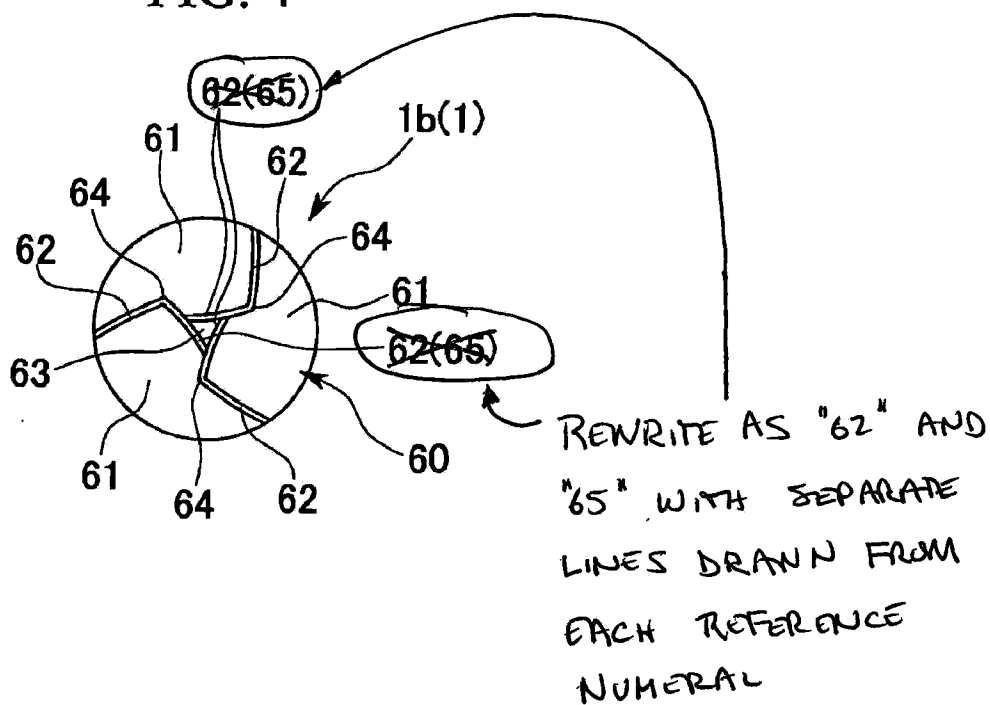 62(65)
1b(1)
61
62
64
64
62
61
62(65)
63
60
61
64
62
REWRITE AS "62" AND
"65" WITH SEPARATE
LINES DRAWN FROM
EACH REFERENCE
NUMERAL